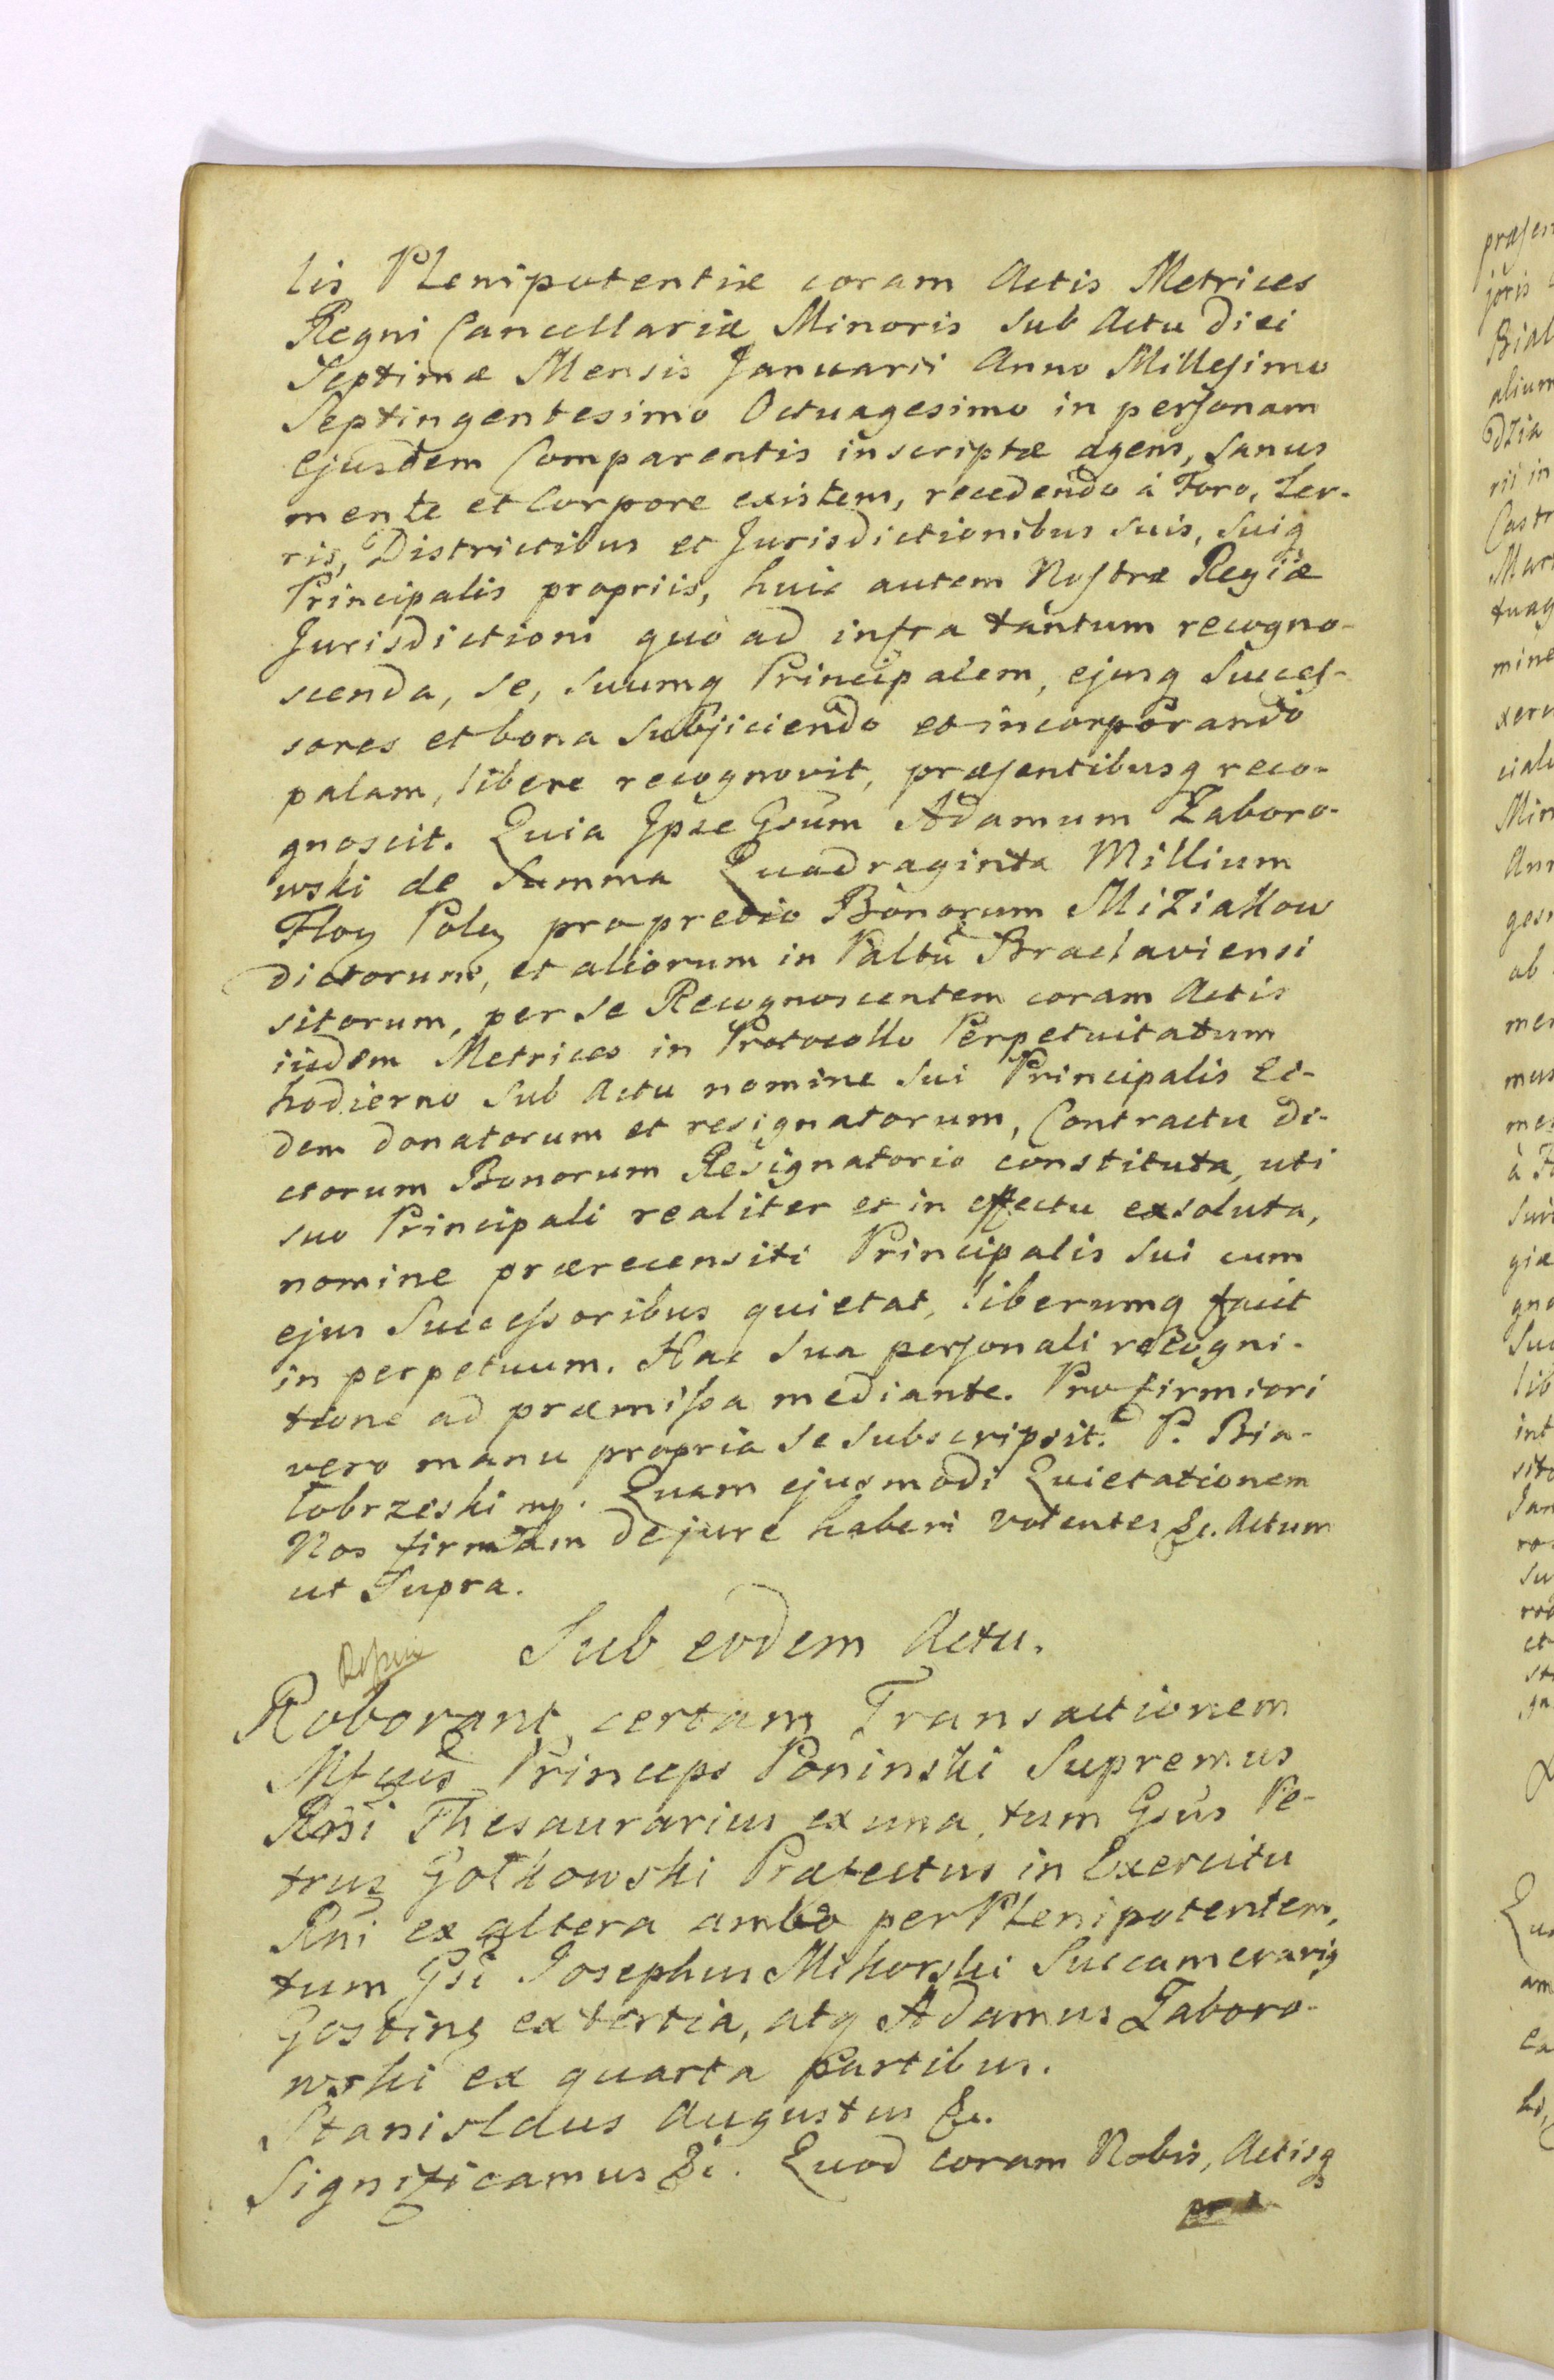 lis Plenipotentiæ coram Actis Metrices
Regni Cancellariæ Minoris sub Actu diei
Septimæ Mensis Januarii Anno Millesimo
Septingentesimo Octuagesimo in personam
ejusdem Comparentis inscriptæ agens, sanus
mente et Corpore existens, recedendo à Foro, Ter-
ris, Districtibus et Jurisdictionibus suis, suiq
Principalis propriis, huic autem Nostræ Regiæ
Jurisdictioni quò ad infra tantum recogno-
scenda, se, suumq Principalem, ejusq Succes-
sores et bona subjiciendo et incorporando
palam, libere recognovit, præsentibusq reco-
gnoscit. Quia Ipse Gsum Adamum Zaboro-
wski de Summa Quadraginta Millium
Floy Poley pro pretio Bonorum Miziakow
dictorum, et aliorum in Paltu Braclaviensi
sitorum, per se Recognoscentem coram Actis
iisdem Metrices in Protocollo Perpetuitatum
hodierno sub Actu nomine sui Principalis Ei-
dem donatorum et resignatorum, Contractu di-
ctorum Bonorum Resignatorio constituta, uti
suo Principali realiter et in effectu exsoluta,
nomine prærecensiti Principalis sui cum
ejus Successoribus quietat, liberumq facit
in perpetuum. Hac sua personali recogni-
tione ad præmissa mediante. Pro firmiori
vero manu propria se subscripsit. P. Bia-
łobrzeski mp. Quam ejusmodi Quietationem
Nos firmam de jure haberi volentes &c. Actum
ut Supra.
Sub eodem Actu.
Roborant certam Transactionem
Princeps Poninski Supremus
Rni Thesaurarius ex una, tum Gsus Pe-
trus Gołkowski Præfectus in Exercitu
Rni ex altera ambo per Plenipotentem,
tum Gsi Josephus Mikorski Succamerariq
Gostinq ex tertia, atq Adamus Zaboro-
wski ex quarta partibus.
Stanislaus Augustus &c.
Significamus &c. Quod coram Nobis, Actisq